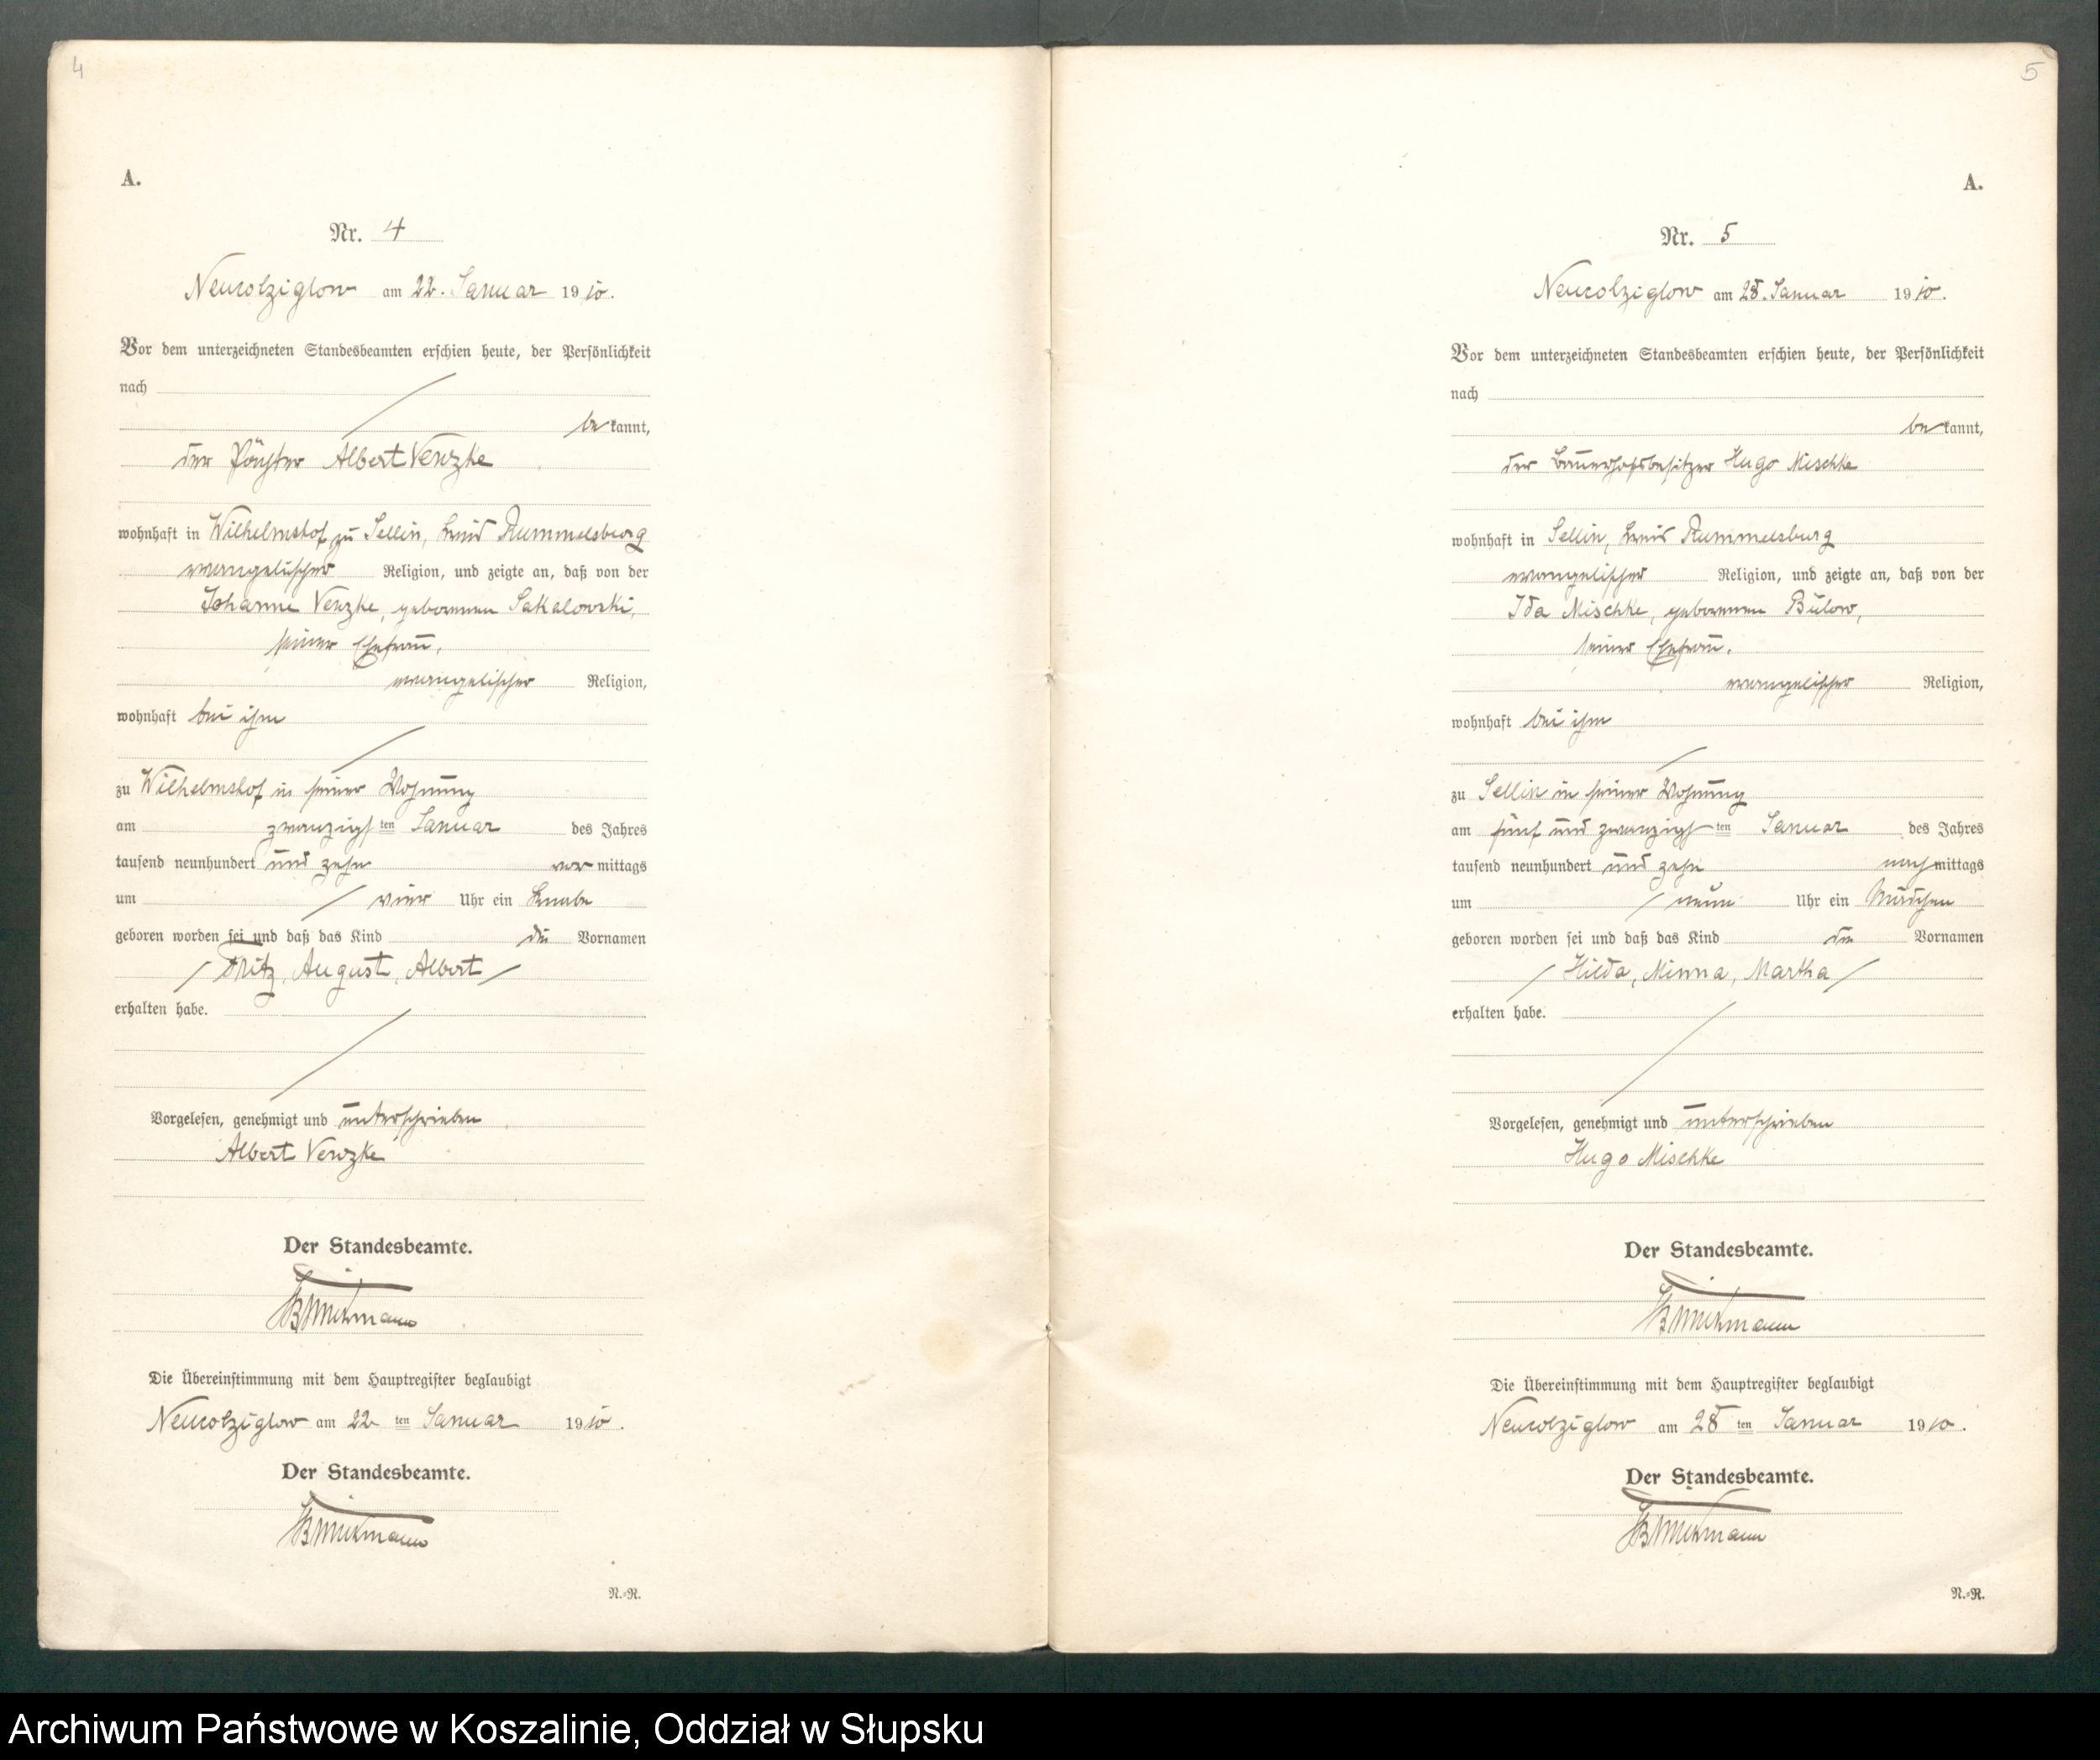 4
A.
Nr. 4
Neukolziglow am 22. Januar 1910.
Vor dem unterzeichneten Standesbeamten erschien heute, der Persönlichkeit
nach
bekannt,
der Pächter Albert Venzke
wohnhaft in Wilhelmshof zu Sellin, Kreis Rummelsburg
evangelischer Religion, und zeigte an, daß von der
Johanne Venzke, geborenen Sakalowski,
seiner Ehefrau,
evangelischer Religion,
wohnhaft bei ihm
zu Wilhelmshof in seiner Wohnung
am zwanzigsten Januar des Jahres
tausend neunhundert und zehn vormittags
um vier Uhr ein Knabe
geboren worden sei und daß das Kind die Vornamen
Fritz, August, Albert
erhalten habe.
Vorgelesen, genehmigt und unterschrieben
Albert Venzke
Der Standesbeamte.
Die Übereinstimmung mit dem Hauptregister beglaubigt
Neukolziglow am 22ten Januar 1910.
Der Standesbeamte.
N.-R.
5
A.
Nr. 5
Neukolziglow am 28. Januar 1910.
Vor dem unterzeichneten Standesbeamten erschien heute, der Persönlichkeit
nach
bekannt,
der Bauerhofsbesitzer Hugo Mischke
wohnhaft in Sellin, Kreis Rummelsburg
evangelischer Religion, und zeigte an, daß von der
Ida Mischke, geborenen Bülow,
seiner Ehefrau,
evangelischer Religion,
wohnhaft bei ihm
zu Sellin in seiner Wohnung
am fünf und zwanzigsten Januar des Jahres
tausend neunhundert und zehn nachmittags
um neun Uhr ein Mädchen
geboren worden sei und daß das Kind die Vornamen
Hilda, Minna, Martha
erhalten habe.
Vorgelesen, genehmigt und unterschrieben
Hugo Mischke
Der Standesbeamte.
Die Übereinstimmung mit dem Hauptregister beglaubigt
Neukolziglow am 28ten Januar 1910.
Der Standesbeamte.
N.-R.
Archiwum Państwowe w Koszalinie, Oddział w Słupsku